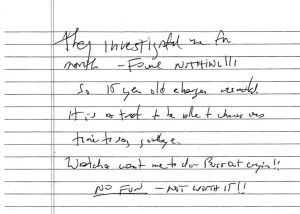 They investigated me for
month – Found NOTHING!!!
So 15 year old charges remold
It is a treat to be able to choose ones
time to say goodbye.
Watcha want me to do – Burst out crying!!
NO FUN – NOT WORTH IT!!